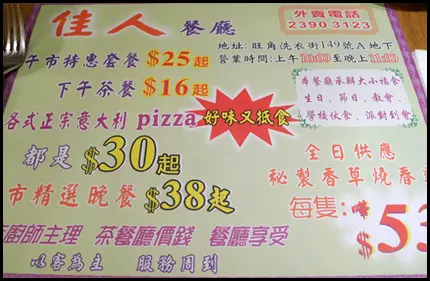 佳人餐廳
外賣電話
2390 3123
地址:旺角洗衣街149號A地下
營業時間:上午10:00至晚上11:00
午市特惠套餐$25起
下午茶餐$16起
各式正宗意大利pizza
好味又抵食
都是$30起
市精選晚餐$38起
本餐廳承辦大小禮食
生日、節日、教會、
學校伙食、派對到會
全日供應
秘製香草燒春
每隻:$53
廚師主理 茶餐廳價錢 餐廳享受
以客為主 服務周到